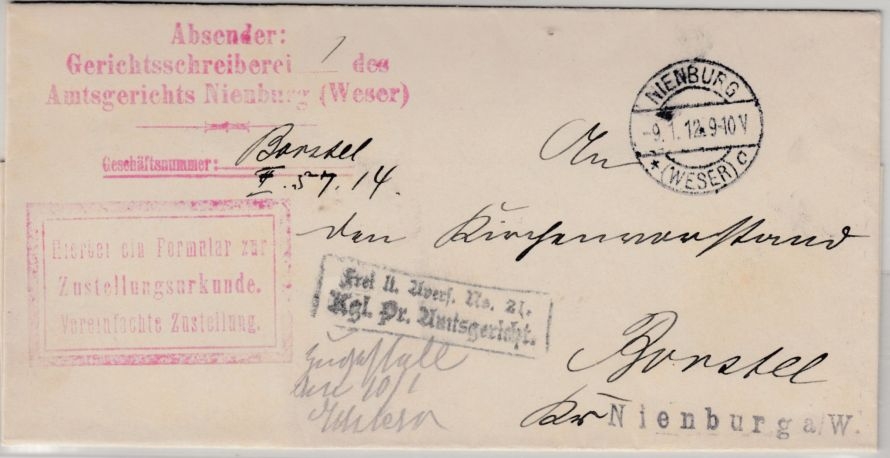 Absender:
Gerichtsschreiberei 1 des
Amtsgerichts Nienburg (Weser)
Geschäftsnummer: Borstel
II. 57. 14.
Hierbei ein Formular zur
Zustellungsurkunde.
Vereinfachte Zustellung.
NIENBURG
-9.1.12. 9-10 V
* (WESER) c
An
den Kirchenvorstand
Frei lt. Avers. No. 21.
Kgl. Pr. Amtsgericht.
Zugestellt
den 10/1
Borstel
Kr Nienburg a/W.